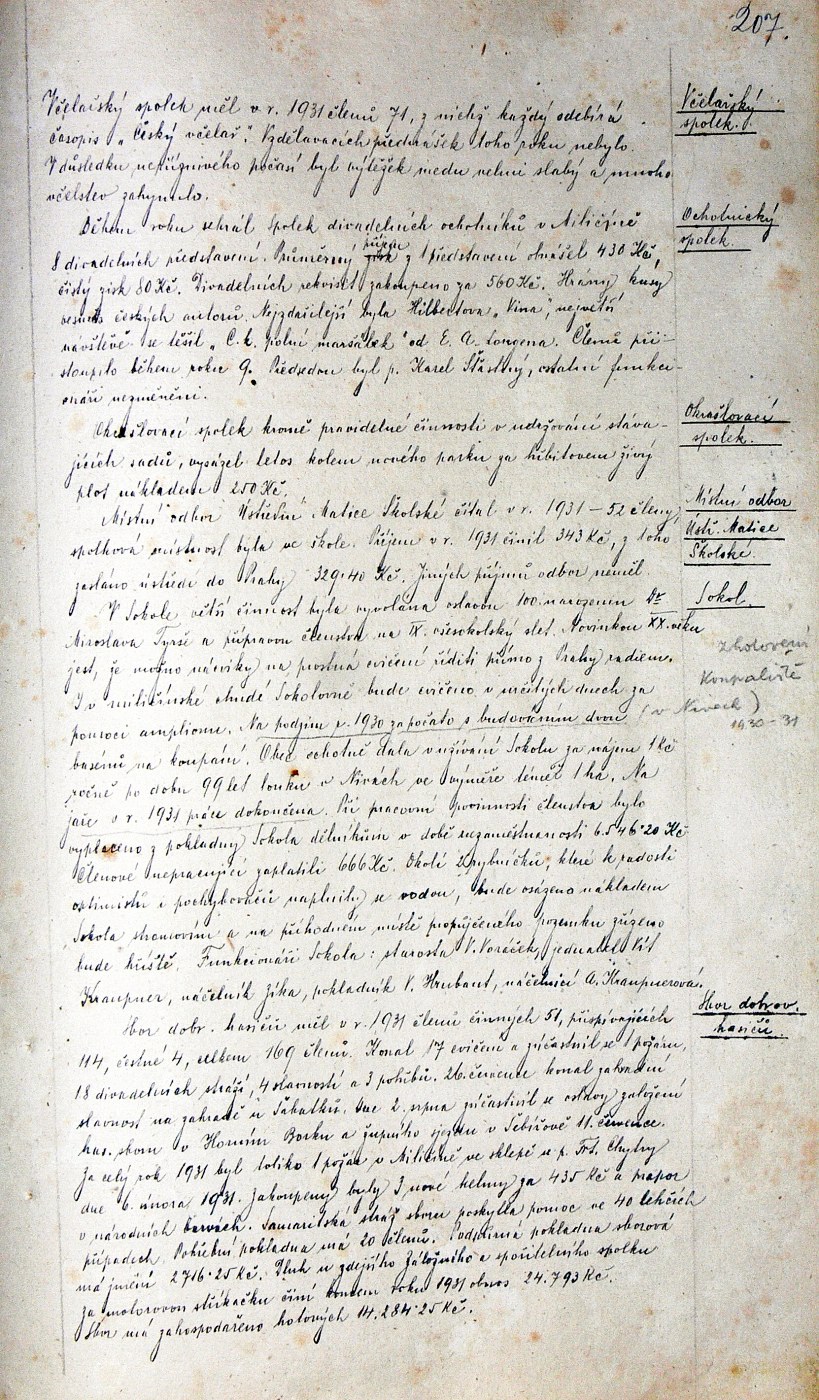 207.
Včelařský spolek měl v r. 1931 členů 71, z nichž každý odebírá
časopis „Český včelař". Vzdělavacích přednášek toho roku nebylo.
V důsledku nepříznivého počasí byl výtěžek medu velmi slabý a mnoho
včelstev zahynulo.
Včelařský
spolek.
Během roku sehrál spolek divadelních ochotníků v Miličíně
8 divadelních představení. Průměrný příjem z 1 představení obnášel 430 Kč,
čistý zisk 80 Kč. Divadelních rekvisit zakoupeno za 560 Kč. Hrány kusy
vesměs českých autorů. Nejzdařilejší byla Hilbertova „Vina", největší
návštěvě se těšil „C. k. polní maršálek" od E. A. Longena. Členů při-
stoupilo během roku 9. Předsedou byl p. Karel Šťastný, ostatní funkci-
onáři nezměněni.
Ochotnický
spolek.
Okrašlovací spolek kromě pravidelné činnosti v udržování stáva-
jících sadů, vysázel letos kolem nového parku za hřbitovem živý
plot nákladem 250 Kč.
Okrašlovací
spolek.
Místní odbor Ústřední Matice Školské čítal v r. 1931 – 52 členy,
spolková místnost byla ve škole. Příjem v r. 1931 činil 343 Kč, z toho
zasláno ústředí do Prahy 329·40 Kč. Jiných příjmů odbor neměl.
Místní odbor
Ústř. Matice
Školské.
V Sokole větší činnost byla vyvolána oslavou 100. narozenin Dr
Miroslava Tyrše a přípravou členstva na IX. všesokolský slet. Novinkou XX. věku
jest, že možno nácviky na prostná cvičení říditi přímo z Prahy radiem.
I v miličínské chudé Sokolovně bude cvičeno v určitých dnech za
pomoci amplionu. Na podzim r. 1930 započato s budováním dvou (v Nivech)
basénů na koupání. Obec ochotně dala v užívání Sokolu za nájem 1 Kč
ročně po dobu 99 let louku v Nivách ve výměře téměř 1 ha. Na
jaře v r. 1931 práce dokončena. Při pracovní povinnosti členstva bylo
vyplaceno z pokladny Sokola dělníkům v době nezaměstnanosti 6.546·20 Kč
Členové nepracující zaplatili 666 Kč. Okolí 2 rybníčků, které k radosti
optimistů i pochybovačů naplnily se vodou, bude osázeno nákladem
Sokola stromovím a na příhodném místě propůjčeného pozemku zřízeno
bude hřiště. Funkcionáři Sokola: starosta V. Voráček, jednatel Vít
Kraupner, náčelník Zíka, pokladník V. Hrubant, náčelnicí A. Kraupnerová.
Sokol.
zhotovení
koupaliště
1930–31
Sbor dobr. hasičů měl v r. 1931 členů činných 51, přispívajících
114, čestné 4, celkem 169 členů. Konal 17 cvičení a zúčastnil se 1 požáru,
18 divadelních stráží, 4 slavností a 3 pohřbů. 26. července konal zahradní
slavnost na zahradě u Sabatků. Dne 2. srpna zúčastnil se oslavy založení
has. sboru v Horním Borku a župního sjezdu v Sebířově 11. července.
Za celý rok 1931 byl toliko 1 požár v Miličíně ve sklepě u p. Frt. Chytry
dne 6. února 1931. Zakoupeny byly 3 nové helmy za 435 Kč a prapor
v národních barvách. Samaritská stráž sboru poskytla pomoc ve 40 lehčích
případech. Pohřební pokladna má 20 členů. Podpůrná pokladna sborová
má jmění 2716·25 Kč. Dluh u zdejšího Záložního a spořitelního spolku
za motorovou stříkačku činí koncem roku 1931 obnos 24.793 Kč.
Sbor má zahospodařeno hotových 14.284·25 Kč.
Sbor dobrov.
hasičů.